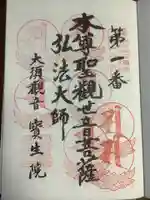 第一番
本尊聖觀世音菩薩
弘法大師
大須觀音寳生院